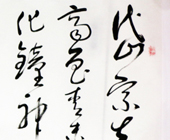 岱宗夫
齊魯青未
化鐘神